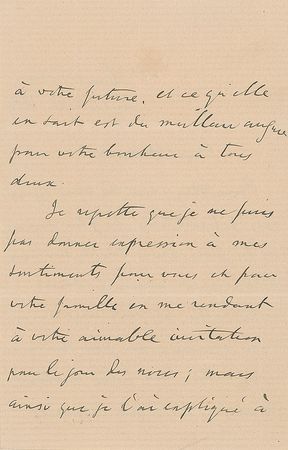 à votre future, et ce qu'elle
en sait est du meilleur augure
pour votre bonheur à tous
deux.
Je regrette que je ne puis
pas donner expression à mes
sentiments pour vous et pour
votre famille en me rendant
à votre aimable invitation
pour le jour des noces; mais
ainsi que je l'ai expliqué à